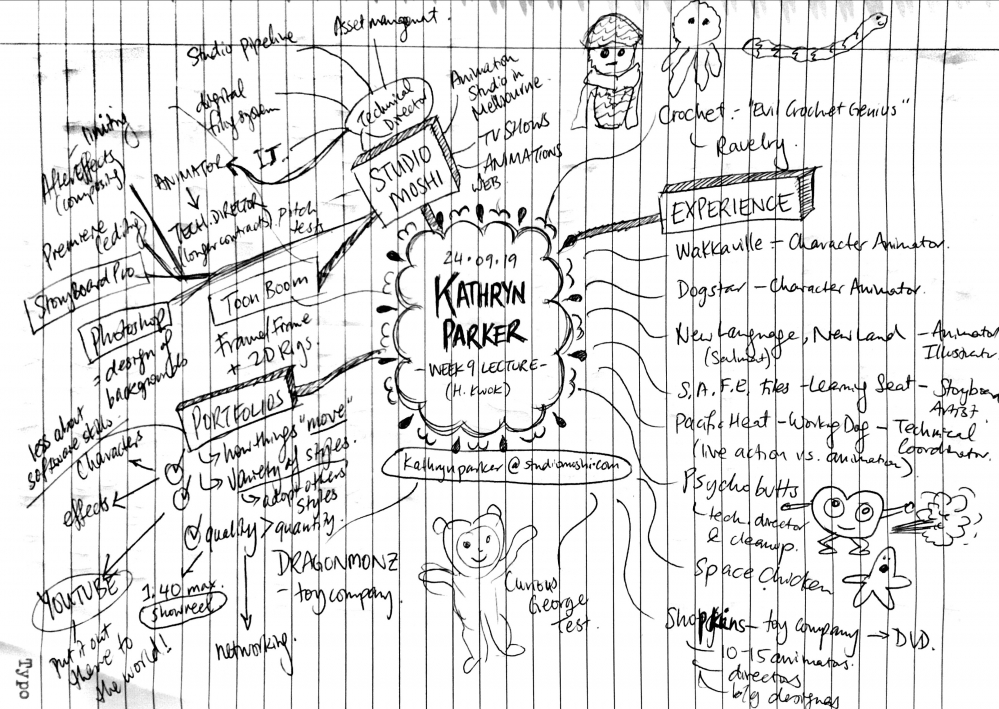 Asset management.
Studio pipeline
digital
filing system
Technical
Director
Animation
Studio in
Melbourne
TV SHOWS
ANIMATIONS
WEB
STUDIO
MOSHI
I.T.
ANIMATOR
TECH. DIRECTOR
(longer contracts).
Pitch
tests
After Effects
(composing)
Premiere
(editing)
Storyboard Pro
Photoshop
= design of
backgrounds
Toon Boom
Frame/Frame
+ 2D Rigs
24.09.19
KATHRYN
PARKER
- WEEK 9 LECTURE -
(H. KWOK)
kathrynparker@studiomoshi.com
PORTFOLIOS
how things "move"
variety of styles.
adopt others
styles
quality > quantity.
less about
software skills.
characters
effects
YOUTUBE
put it out
there to
the world!!
1.40 max.
showreel
networking.
DRAGONMONZ
- toy company.
Curious
George
Test.
Crochet - "Evil Crochet Genius"
Ravelry.
EXPERIENCE
Wakkaville - Character Animator.
Dogstar - Character Animator.
New Language, New Land - Animator
Illustrator
S.A.F.E Files - Learning Seat - Storyboard
Artist
Pacific Heat - Working Dog - Technical
Coordinator.
(live action vs. animation)
Psychobutts
tech. director
& cleanup.
Space Chicken
Shopkins - toy company → DVD.
10-15 animators.
directors
b/g designers
Typo